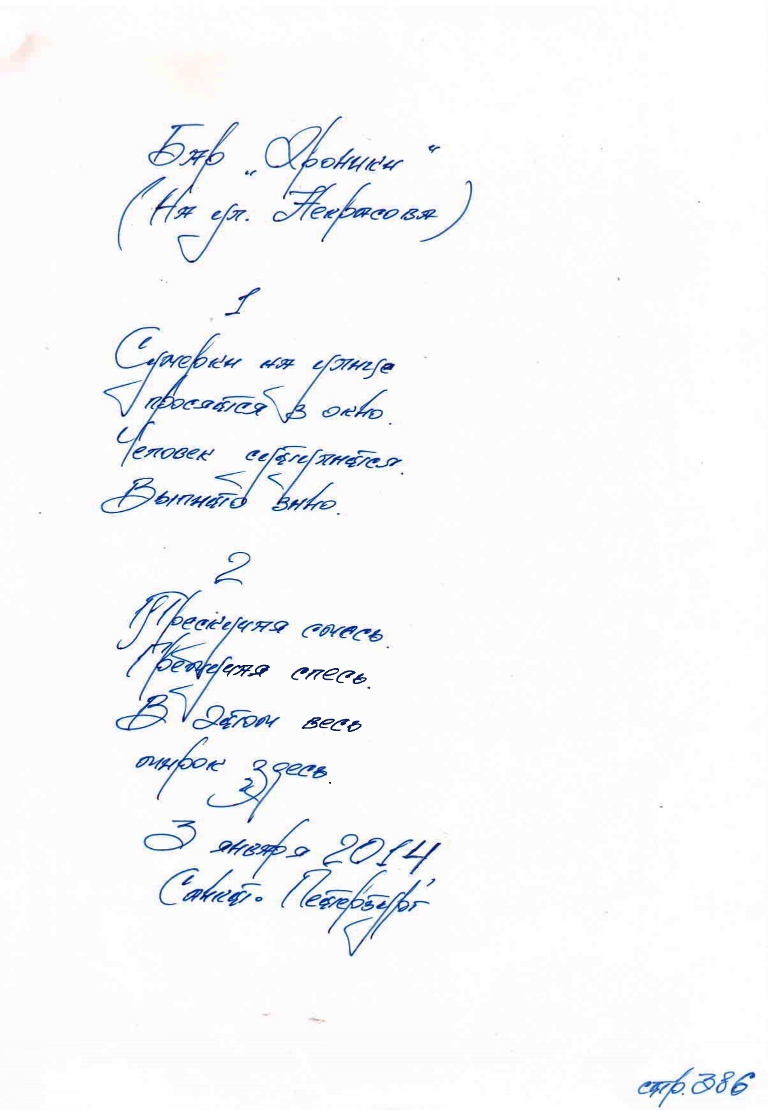 Бар „Хроники“
(На ул. Некрасова)
1
Сумерки на улице
просятся в окно.
Человек сутулится.
Выпито вино.
2
Трескучая смесь.
Гремучая спесь.
В этом весь
мирок здесь.
3 января 2014
Санкт-Петербург
стр.386